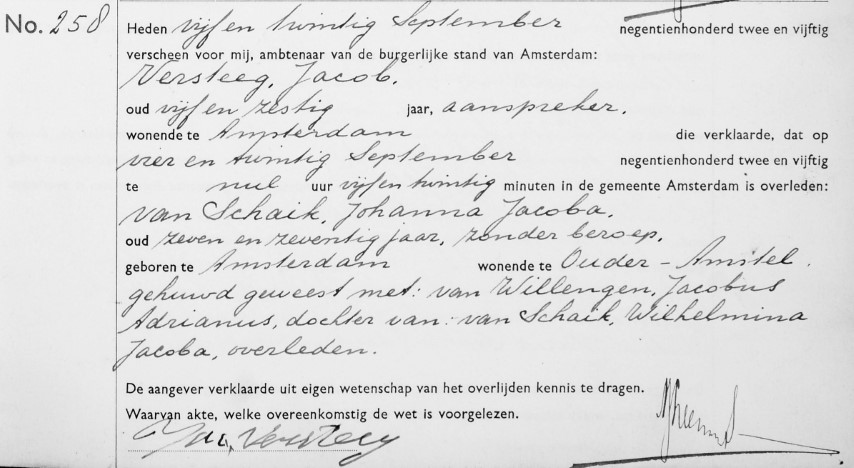 No. 258
Heden vijf en twintig September negentienhonderd twee en vijftig
verscheen voor mij, ambtenaar van de burgerlijke stand van Amsterdam:
Versteeg, Jacob,
oud vijf en zestig jaar, aanspreker,
wonende te Amsterdam die verklaarde, dat op
vier en twintig September negentienhonderd twee en vijftig
te nul uur vijf en twintig minuten in de gemeente Amsterdam is overleden:
van Schaik, Johanna Jacoba,
oud zeven en zeventig jaar, zonder beroep,
geboren te Amsterdam wonende te Ouder-Amstel.
gehuwd geweest met: van Willengen, Jacobus
Adrianus, dochter van: van Schaik, Wilhelmina
Jacoba, overleden.
De aangever verklaarde uit eigen wetenschap van het overlijden kennis te dragen.
Waarvan akte, welke overeenkomstig de wet is voorgelezen.
Jac. Versteeg